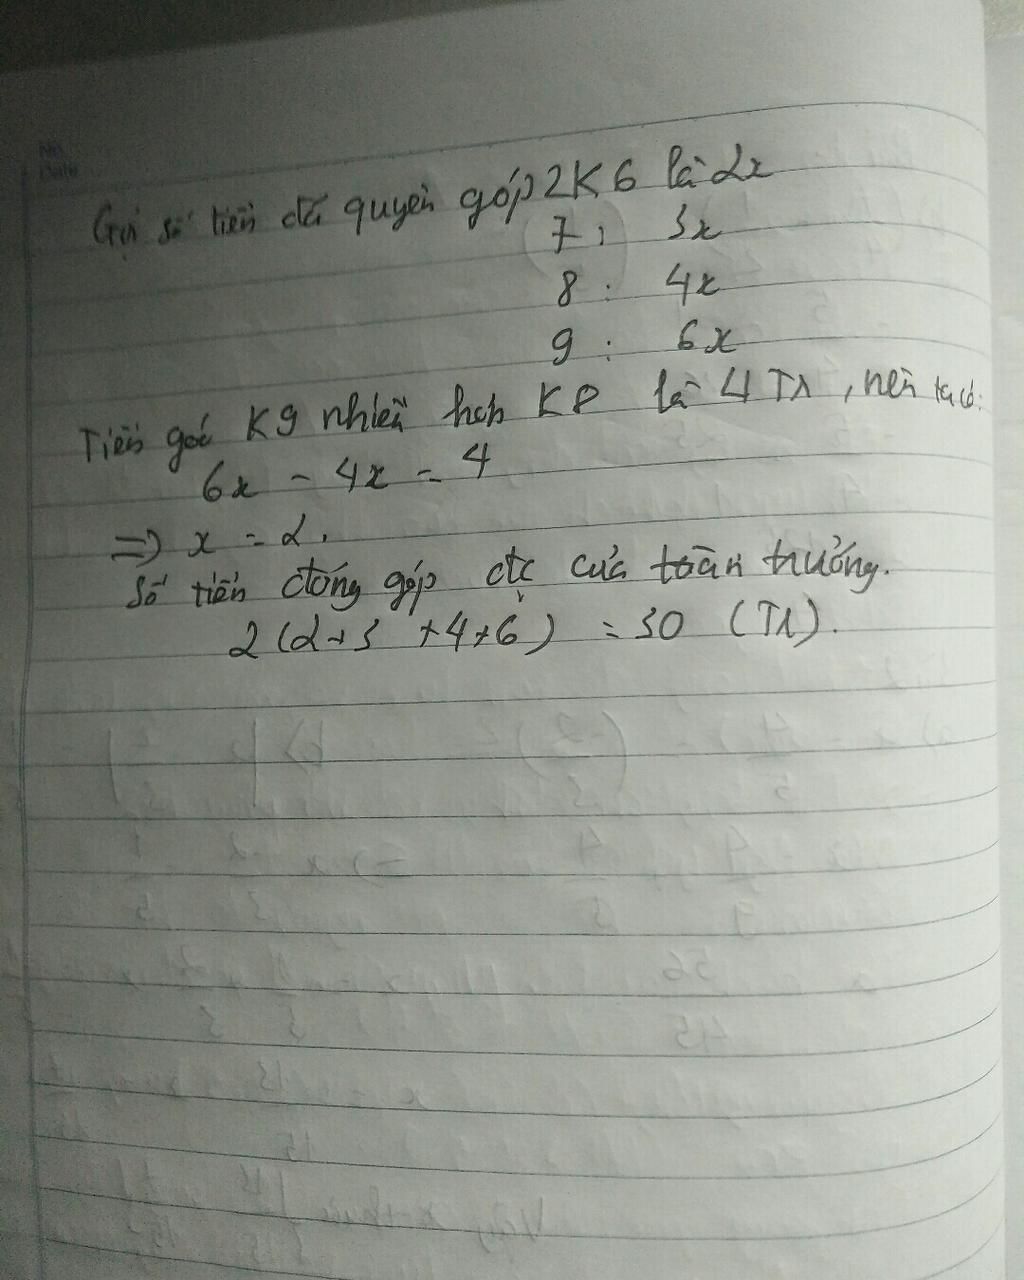 Gọi số tiền đã quyên góp 2 K6 là 2x
7: 3x
8: 4x
9: 6x
Tiền góc K9 nhiều hơn K8 là 4 Tr, nên ta có:
6x - 4x = 4
=> x = 2.
Số tiền đóng góp đc của toàn trường.
2(2+3+4+6) = 30 (Tr).